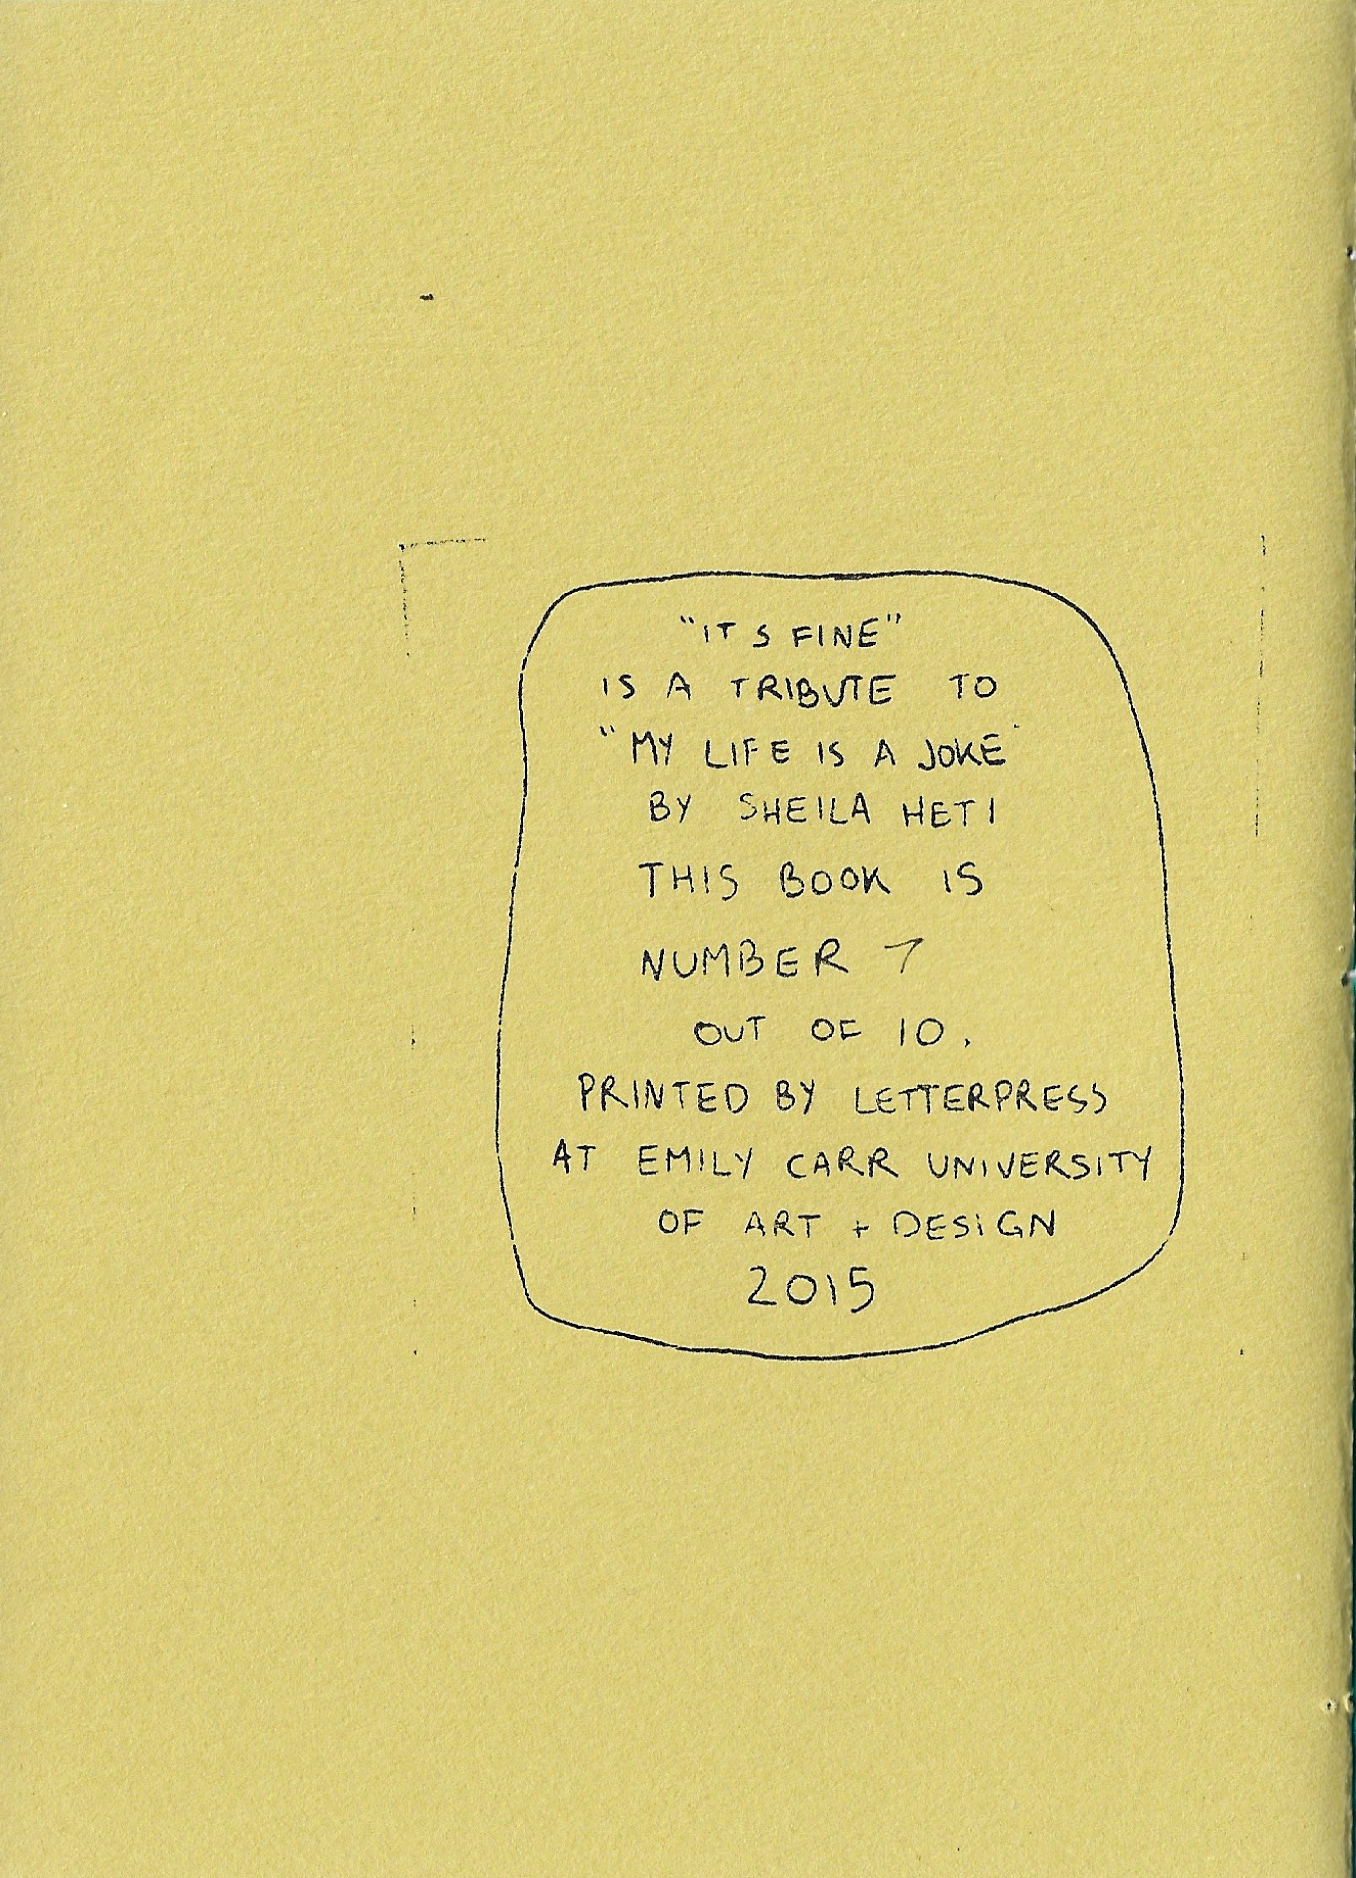 "IT S FINE"
IS A TRIBUTE TO
"MY LIFE IS A JOKE"
BY SHEILA HETI
THIS BOOK IS
NUMBER 7
OUT OF 10.
PRINTED BY LETTERPRESS
AT EMILY CARR UNIVERSITY
OF ART + DESIGN
2015